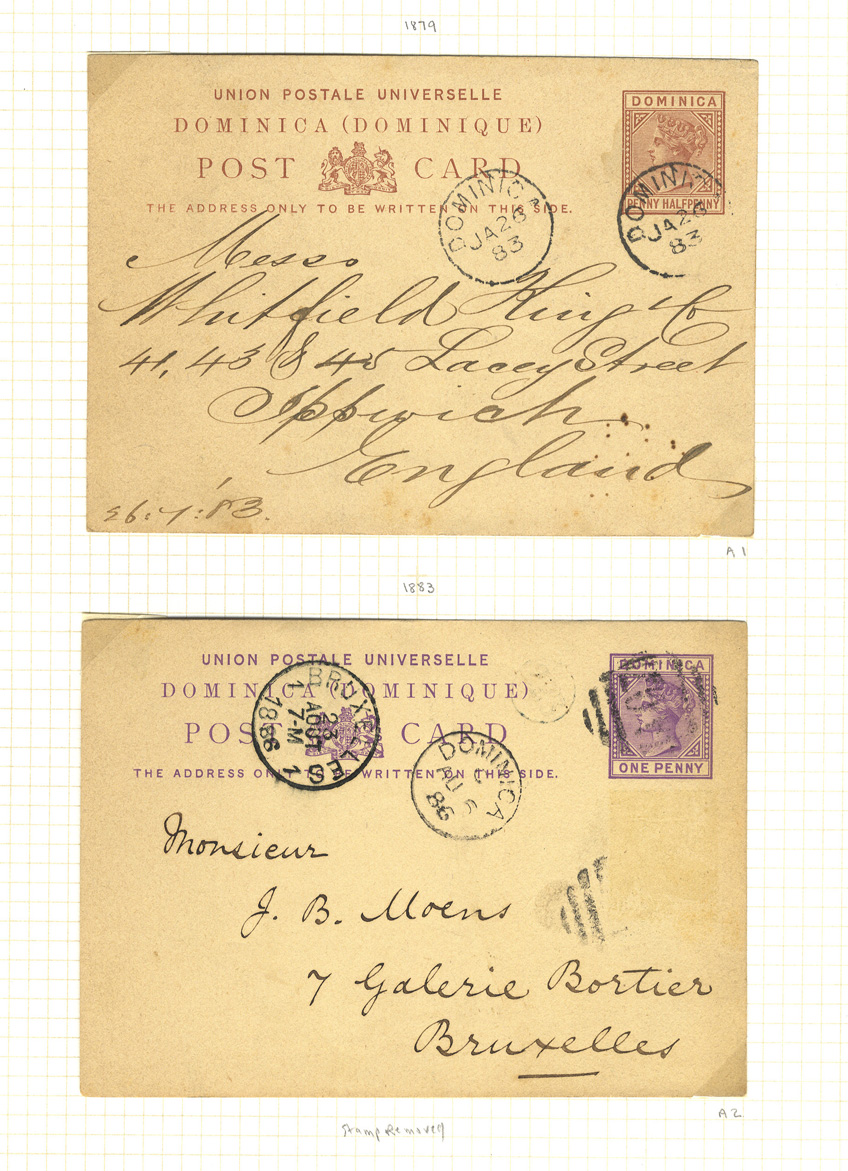 1879
UNION POSTALE UNIVERSELLE
DOMINICA (DOMINIQUE)
POST CARD
THE ADDRESS ONLY TO BE WRITTEN ON THIS SIDE.
DOMINICA
PENNY HALFPENNY
DOMINICA
JA 26
83
DOMINICA
JA 26
83
Messrs
Whitfield King & Co
41, 43 & 45 Lacey Street
Ippwich
England
26:1:83.
A1
1883
UNION POSTALE UNIVERSELLE
DOMINICA (DOMINIQUE)
POST CARD
THE ADDRESS ONLY TO BE WRITTEN ON THIS SIDE.
DOMINICA
ONE PENNY
BRUXELLES 1
23
AOUT
7-M
1886
DOMINICA
AU 6
86
Monsieur
J. B. Moens
7 Galerie Bortier
Bruxelles
A2
Stamp Removed